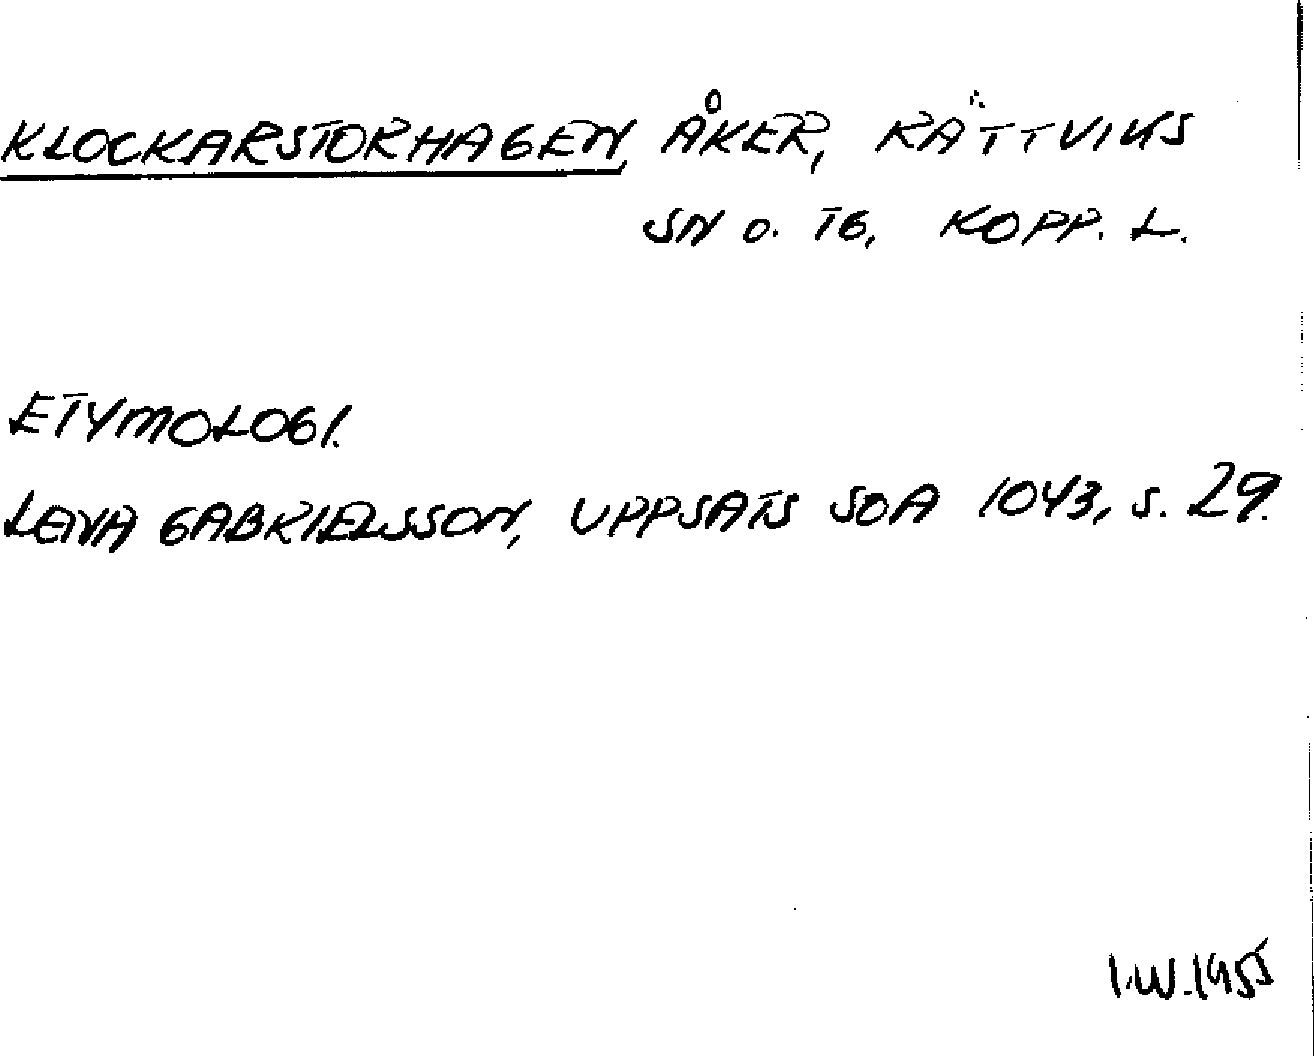 KLOCKARSTORHAGEN, ÅKER, RÄTTVIKS
SN O. TG, KOPP. L.
ETYMOLOGI.
LENA GABRIELSSON, UPPSATS SOA 1043, S. 29.
I.W. 1955